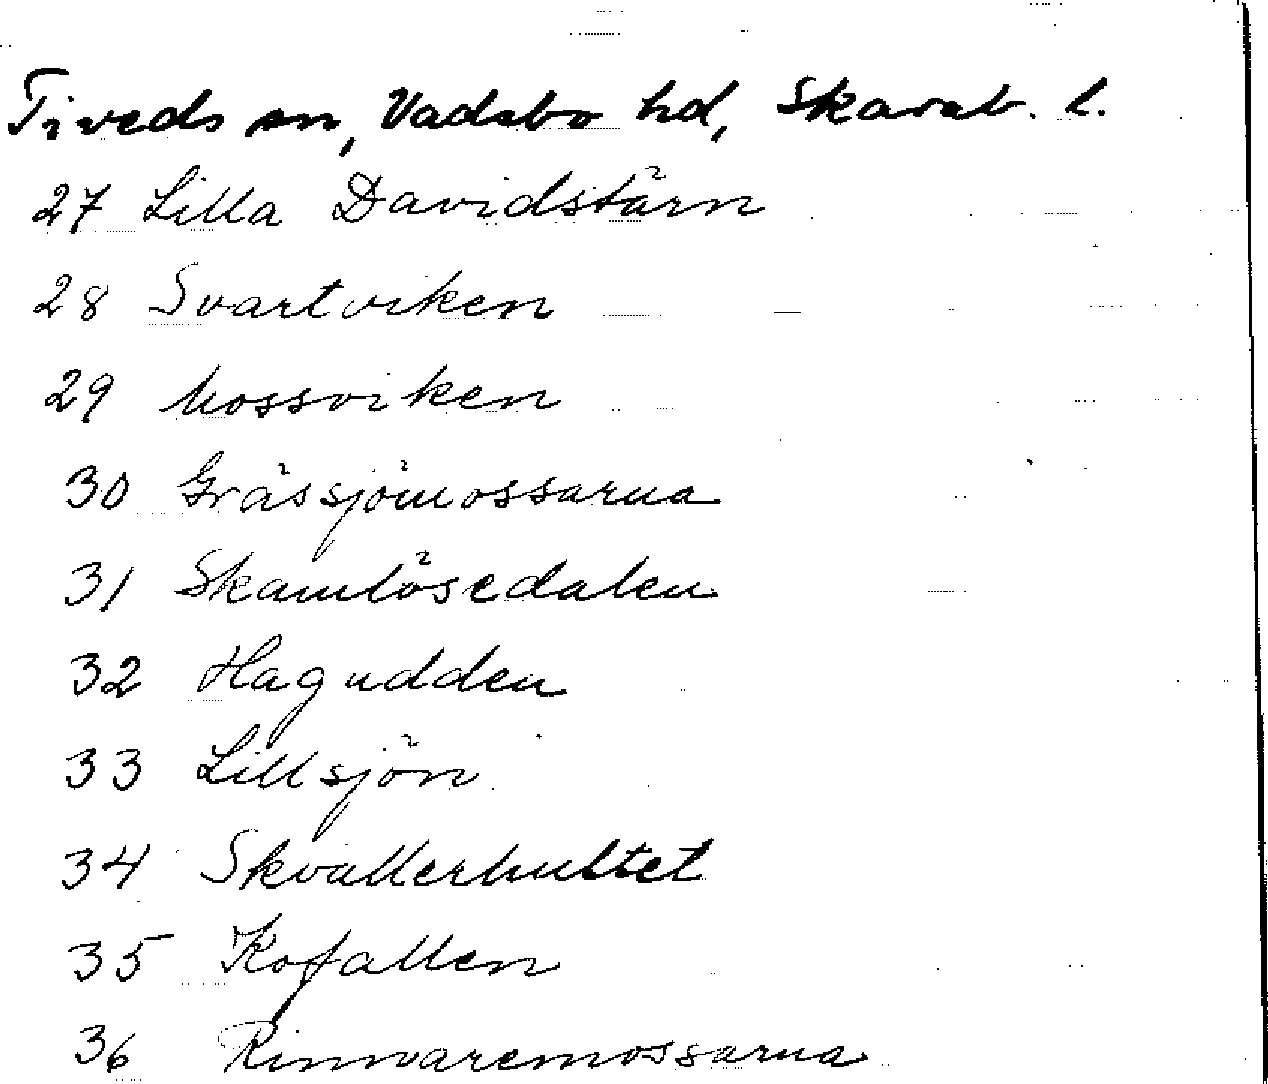 Tiveds sn, Vadsbo hd, Skarab. l.
27 Lilla Davidstärn
28 Svartviken
29 Mossviken
30 Gråssjömossarna
31 Skamlösedalen
32 Hagudden
33 Lillsjön
34 Skvallerhultet
35 Kofallen
36 Rinnaremossarna